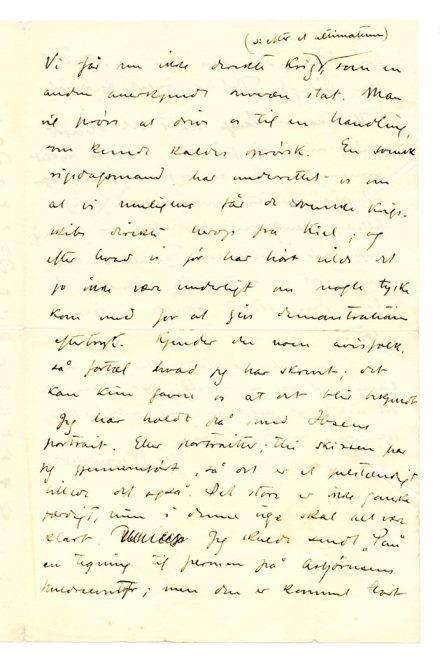 (ɔ: efter et ultimatum)
Vi får nu ikke direkte krig, som en
anden anerkjendt suveræn stat. Man
vil prøve at drive os til en handling,
som kunde kaldes oprørsk. En svensk
rigsdagsmand har underrettet os om
at vi muligens får de svenske krigs-
skibe direkte herop fra Kiel; og
efter hvad vi før har hørt vilde det
jo ikke være underligt om nogle tyske
kom med for at give demonstrationen
eftertryk. Kjender du noen avisfolk,
så fortæl hvad jeg har skrevet; det
kan kun gavne os at det blir bekjendt
Jeg har holdt på med Ibsens
portrait. Eller portraiter; thi skissen har
jeg gjennemført, så det er et selvstændigt
billede det også. Det store er ikke ganske
færdigt, men i denne uge skal alt være
klart. Jeg skulde sendt "Pan"
en tegning til permen på Asbjørnsens
huldreeventyr; men den er kommet bort